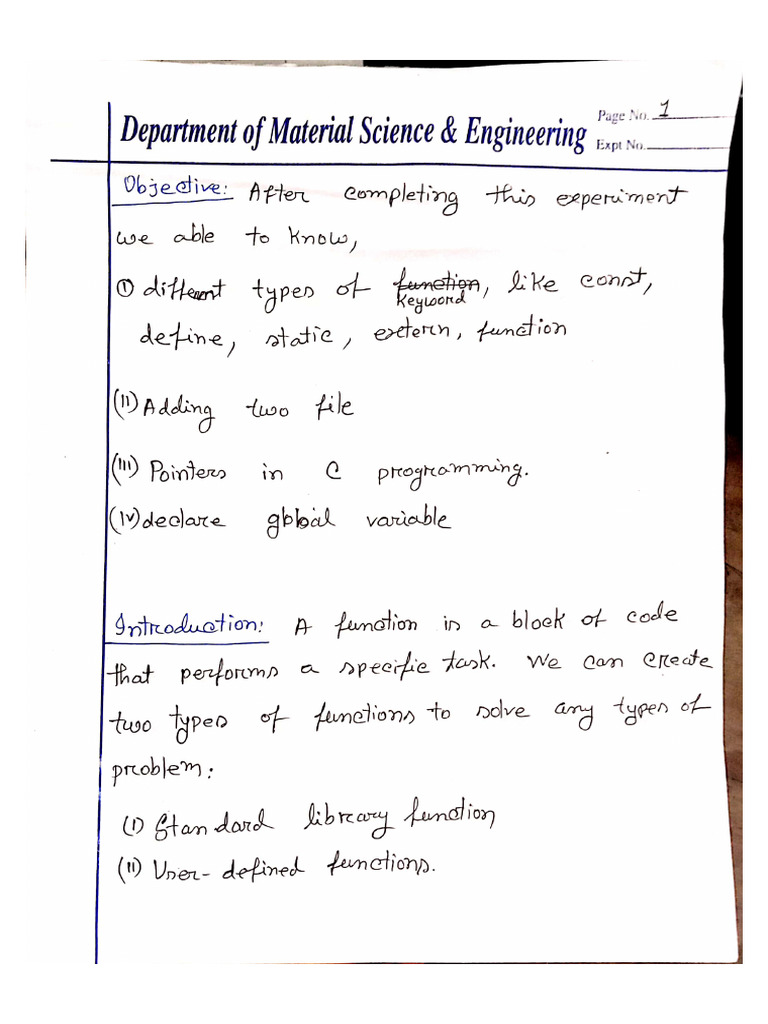 Department of Material Science & Engineering
Page No. 1
Expt No.
Objective: After completing this experiment
we able to know,
(I) different types of function, like const,
keyword
define, static, extern, function
(II) Adding two file
(III) Pointers in C programming.
(IV) declare global variable
Introduction: A function is a block of code
that performs a specific task. We can create
two types of functions to solve any types of
problem:
(I) Standard library function
(II) User-defined functions.